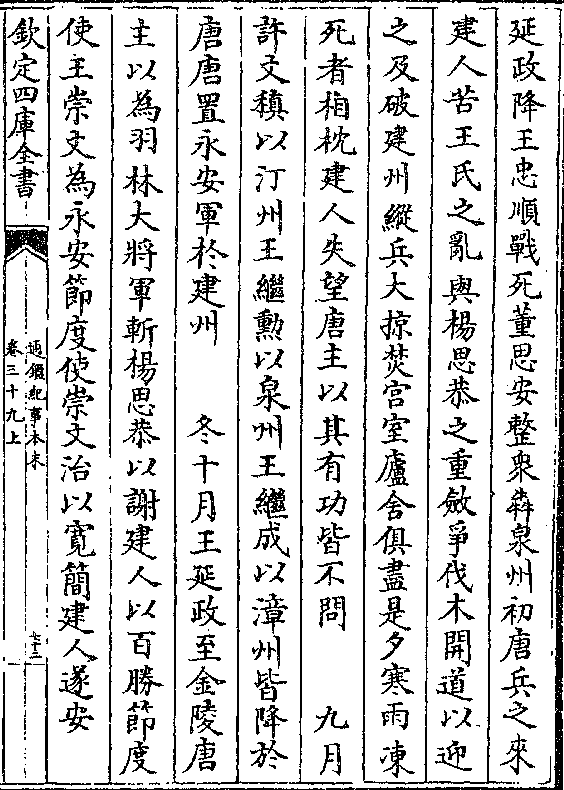 延政降王忠順戰死董思安整衆犇泉州初唐兵之來
建人苦王氏之亂與楊思恭之重斂爭伐木開道以迎
之及破建州縱兵大掠焚宫室廬舍俱盡是夕寒雨凍
死者相枕建人失望唐主以其有功皆不問　九月
許文稹以汀州王繼勳以泉州王繼成以漳州皆降於
唐唐置永安軍於建州　冬十月王延政至金陵唐
主以為羽林大將軍斬楊思恭以謝建人以百勝節度
使王崇文為永安節度使崇文治以寬簡建人遂安
欽定四庫全書
通鑑紀事本末
卷三十九上
七十三